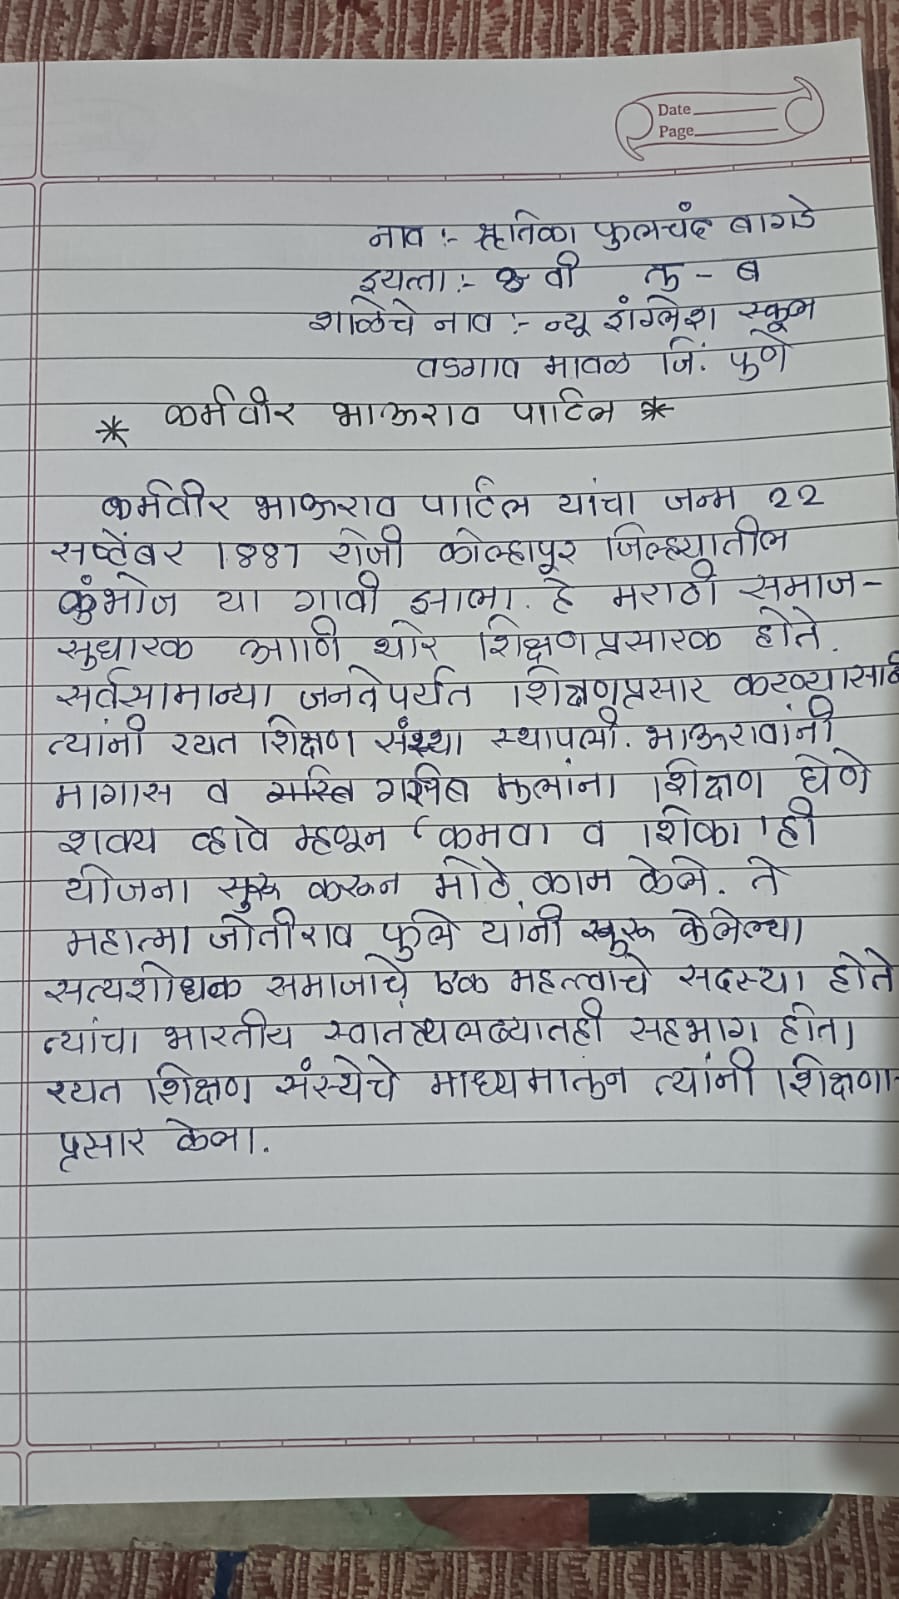 Date
Page
नाव :- ऋतिका फुलचंद बागडे
इयत्ता :- 8 वी तु - ब
शाळेचे नाव :- न्यू इंग्लिश स्कूल
वडगाव मावळ जि. पुणे
* कर्मवीर भाऊराव पाटिल *
कर्मवीर भाऊराव पाटिल यांचा जन्म 22
सप्टेंबर 1887 रोजी कोल्हापूर जिल्ह्यातील
कुंभोज या गावी झाला. हे मराठी समाज-
सुधारक आणि थोर शिक्षणप्रसारक होते.
सर्वसामान्या जनतेपर्यंत शिक्षणप्रसार करण्यासाठी
त्यांनी रयत शिक्षण संस्था स्थापली. भाऊरावांनी
मागास व गरिब मुलांना शिक्षण घेणे
शक्य व्हावे म्हणून 'कमवा व शिका' ही
योजना सुरू करून मोठे काम केले. ते
महात्मा जोतीराव फुले यांनी सुरू केलेल्या
सत्यशोधक समाजाचे एक महत्त्वाचे सदस्या होते
त्यांचा भारतीय स्वातंत्र्यलढ्यातही सहभाग होता
रयत शिक्षण संस्थेचे माध्यमातुन त्यांनी शिक्षणा-
प्रसार केला.